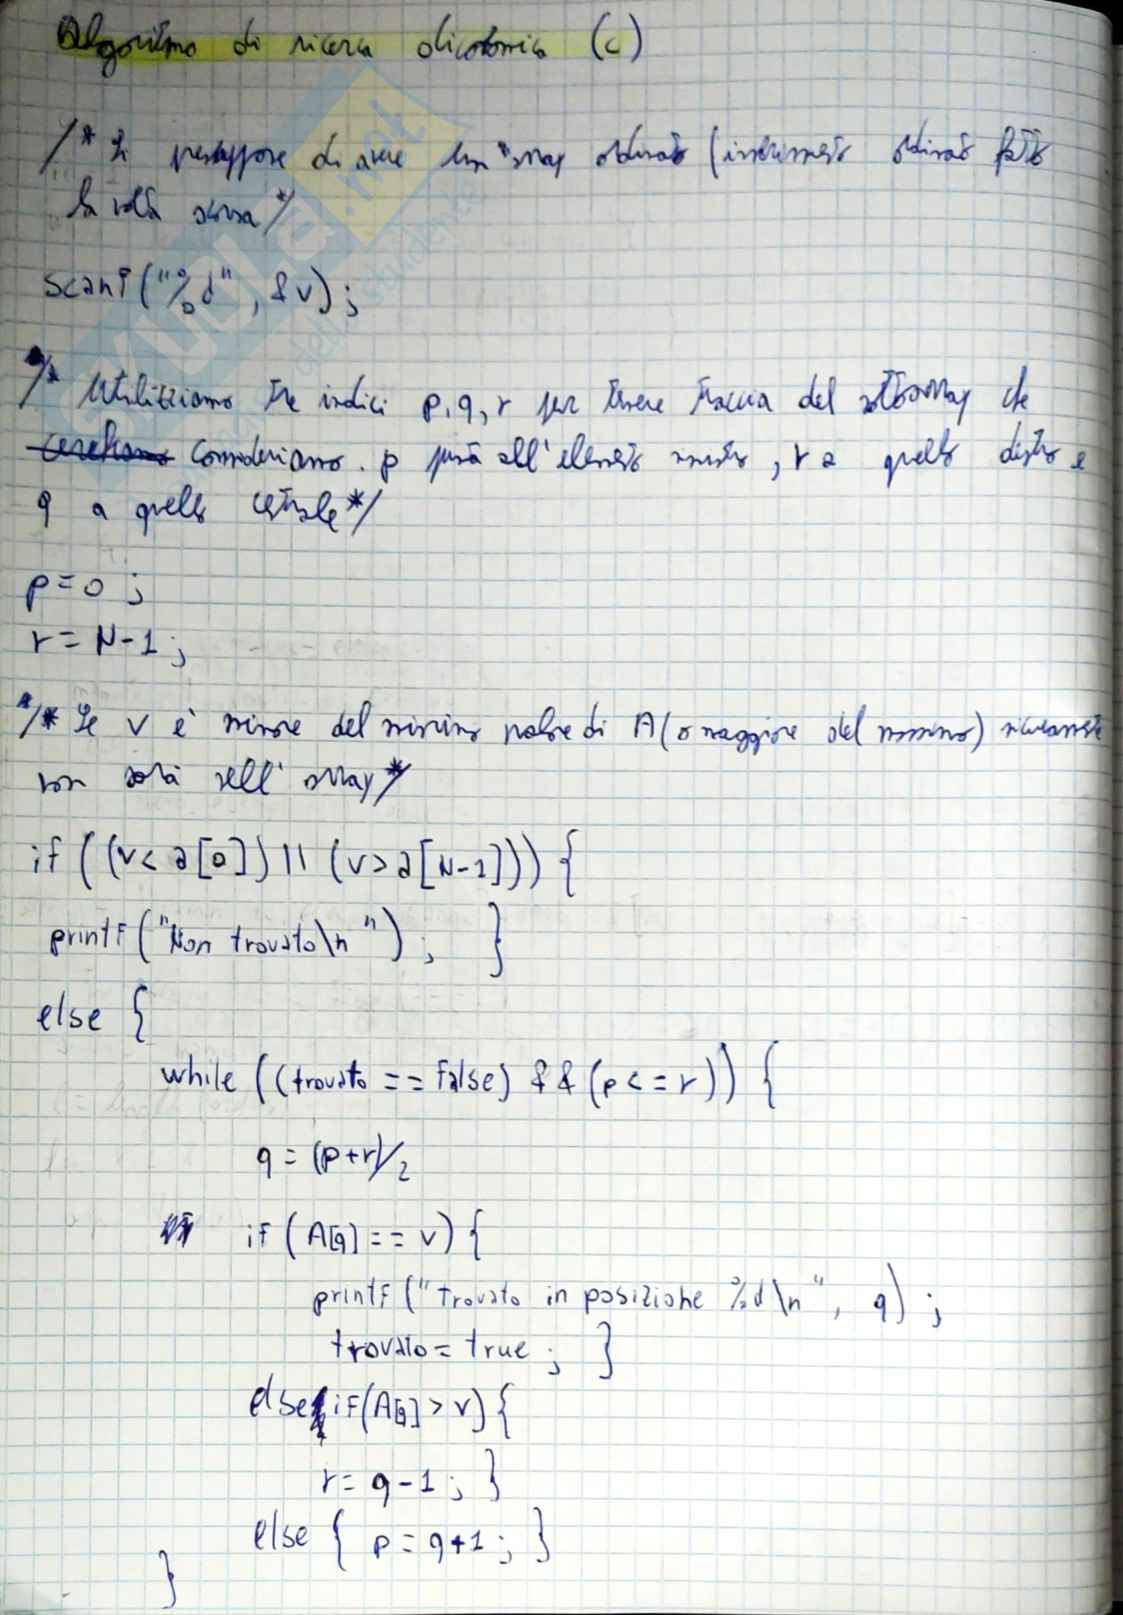 Algoritmo di ricerca dicotomica (c)
/* Si presuppone di avere un array ordinato (inserimento ordinato fatto
la volta scorsa */
scanf("%d", &v);
/* Utilizziamo tre indici p, q, r per tenere traccia del sottoarray che
consideriamo. p punta all'elemento sinistro, r a quello destro e
q a quello centrale */
p=0 ;
r= N-1 ;
/* Se v è minore del minimo valore di A (o maggiore del massimo) sicuramente
non sarà nell' array */
if ((v< a[0]) || (v>a[N-1])) {
printf("Non trovato\n ") ; }
else {
while ((trovato == false) && (p<=r)) {
q = (p+r)/2
if (A[q] == v) {
printf ("trovato in posizione %d\n", q) ;
trovato = true ; }
else if(A[q] > v) {
r= q-1 ; }
else { p = q+1 ; }
}
SKUOLA.net